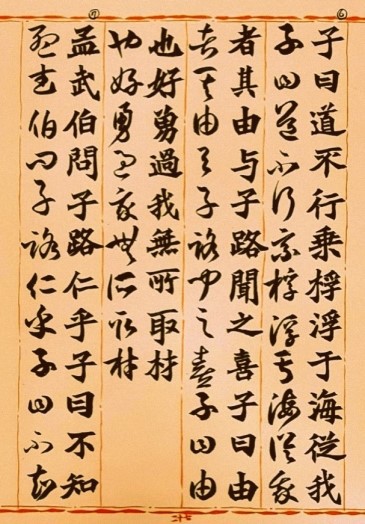 ⑥
子曰道不行乗桴浮于海從我
子曰道不行乗桴浮于海從我
者其由与子路聞之喜子曰由
者其由与子路聞之喜子曰由
也好勇過我無所取材
也好勇過我無所取材
⑦
孟武伯問子路仁乎子曰不知
孟武伯問子路仁乎子曰不知
二十七